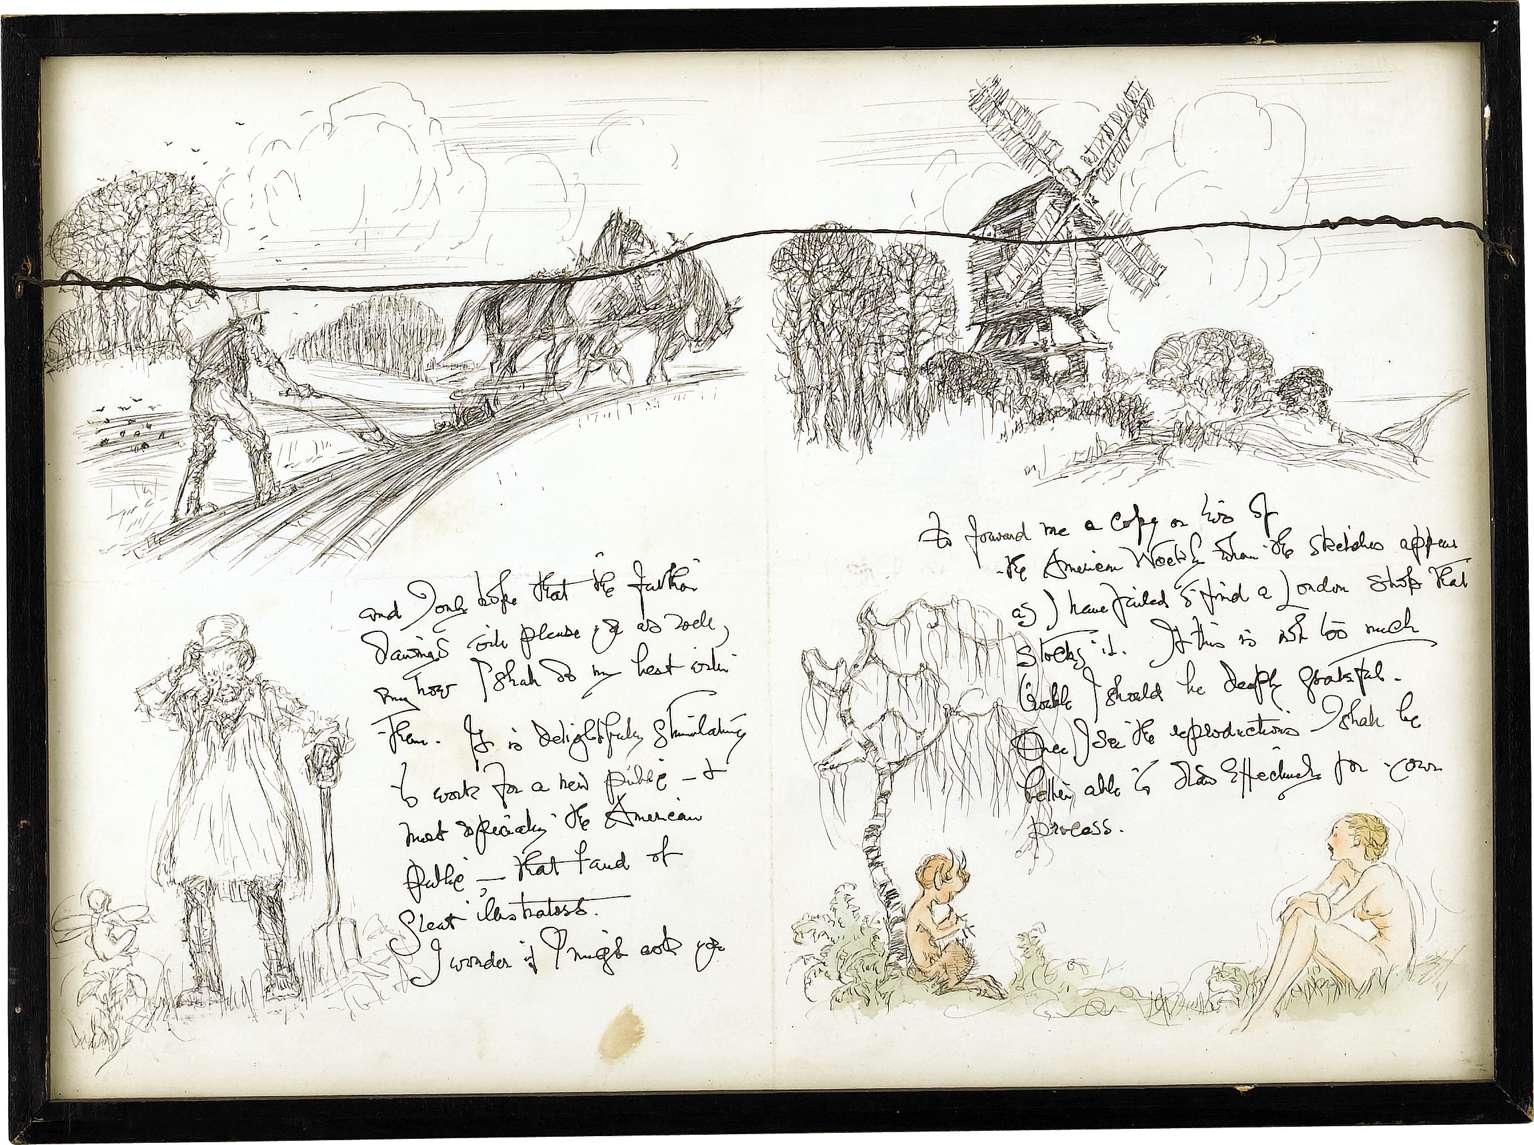 and I only hope that the further
drawings will please you as well,
my how I shall do my best with
them. It is delightfully stimulating
to work for a new public — &
most specially the American
public — that land of
great illustrators.
I wonder if I might ask you
to forward me a copy or two of
the American Weekly when the sketches appear
as I have failed to find a London shop that
stocks it. If this is not too much
trouble I should be deeply grateful.
Once I see the reproductions I shall be
better able to draw effectively for your
process.